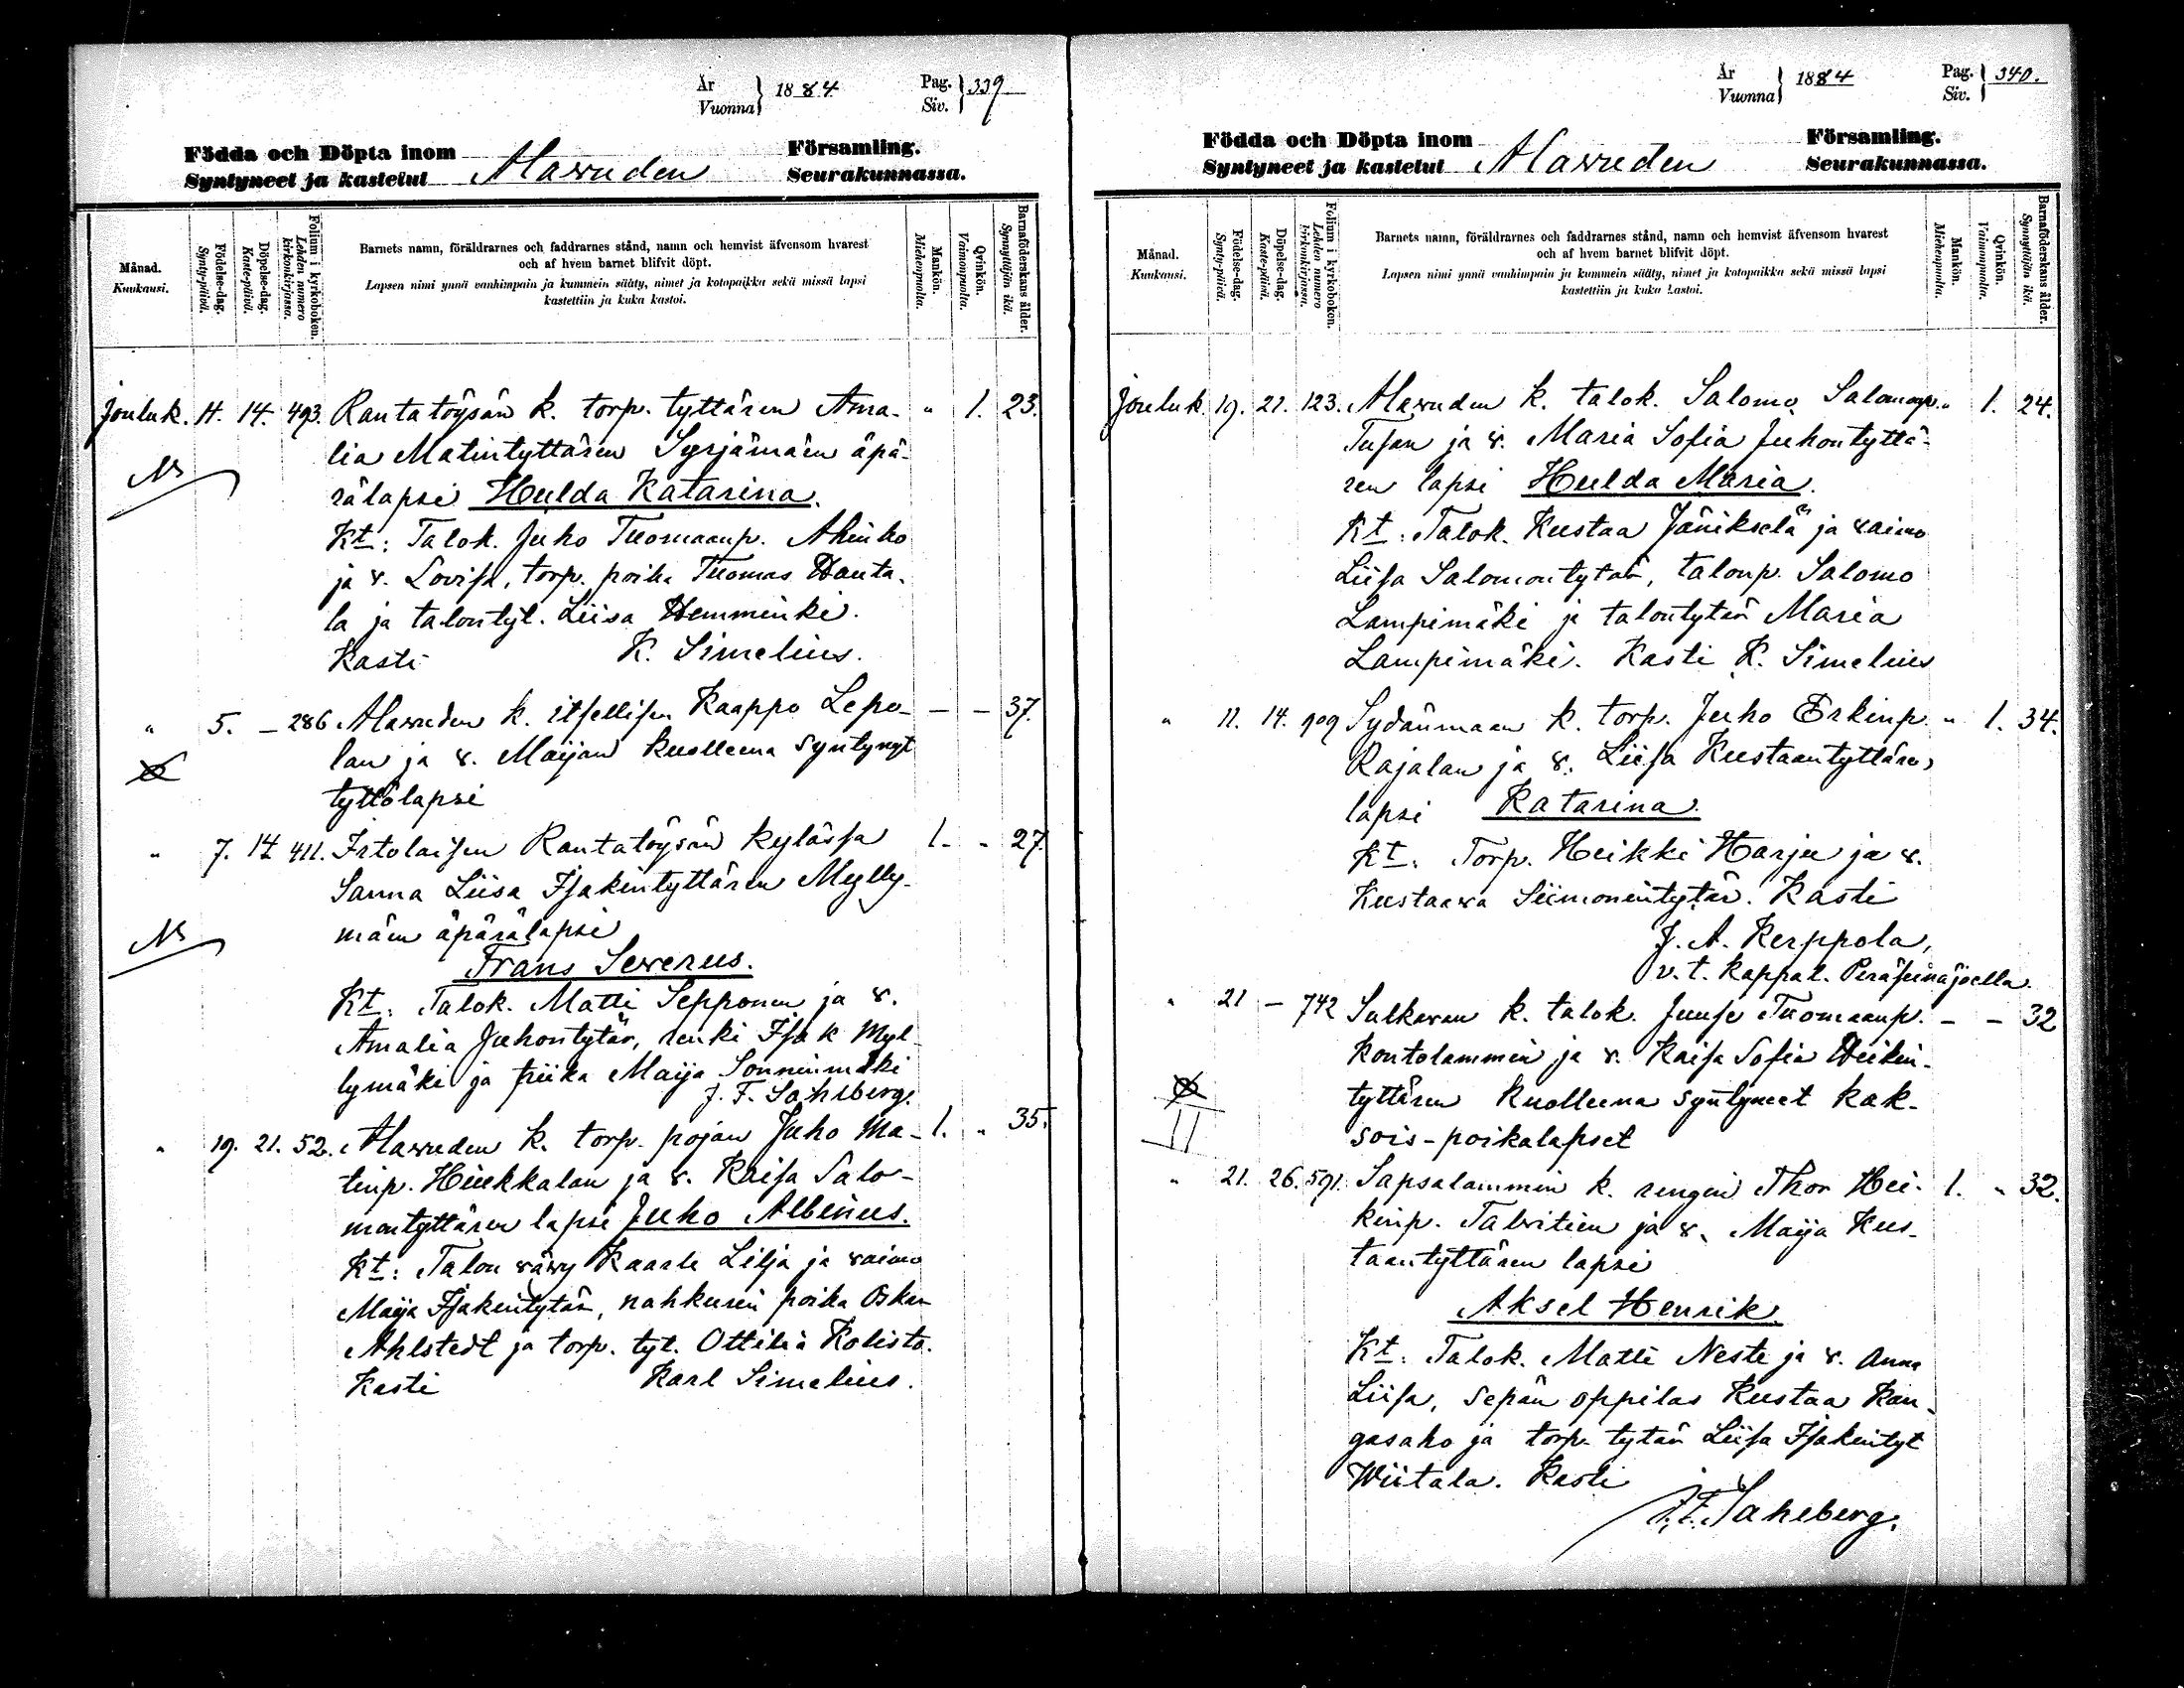 År
Vuonna } 1884
Pag.
Siv. } 339
Födda och Döpta inom
Församling.
Syntyneet ja kastetut Alawuden Seurakunnassa.
Månad.
Kuukausi.
Födelse-dag.
Synty-päivä.
Döpelse-dag.
Kaste-päivä.
Folium i kyrkoboken.
Lehden numero
kirkonkirjassa.
Barnets namn, föräldrarnes och faddrarnes stånd, namn och hemvist äfvensom hvarest
och af hvem barnet blifvit döpt.
Lapsen nimi ynnä vanhimpain ja kummein sääty, nimet ja kotopaikka sekä missä lapsi
kastettiin ja kuka kastoi.
Mankön.
Miehenpuolta.
Qvinkön.
Vaimonpuolta.
Barnaföderskans ålder.
Synnyttäjän ikä.
Jouluk. 11. 14. 493. Rantatöysän k. torp. tyttären Ama- " 1. 23.
lia Matintyttären Syrjämäen äpä-
rälapsi Hulda Katarina.
Kt: Talok. Juho Tuomaanp. Akinho
ja v. Lovisa, torp. poika Tuomas Hauta-
la ja talontyt. Liisa Hemminki.
Kasti K. Simelius.
" 5. – 286 Alawuden k. itsellisen Kaappo Lepo- – – 37.
lan ja v. Maijan kuolleena syntynyt
tyttölapsi
" 7. 14 411. Irtolaisen Rantatöysän kylässä 1. " 27.
Sanna Liisa Isakintyttären Mylly-
mäen äpärälapsi
Frans Sewerus.
Kt: Talok. Matti Sepponen ja v.
Amalia Juhontytär, renki Isak Myl-
lymäki ja piika Maija Sonninmäki
J. F. Sahlberg.
" 19. 21. 52. Alawuden k. torp. pojan Juho Ma- 1. " 35.
tinp. Hiekkalan ja v. Kaisa Salo-
montyttären lapsi Juho Albinus.
Kt: Talon wäwy Kaarle Lilja ja vaimo
Maija Isakintytär, nahkurin poika Oskar
Ahlstedt ja torp. tyt. Ottilia Kolisto.
Kasti Karl Simelius.
År
Vuonna } 1884
Pag.
Siv. } 340.
Födda och Döpta inom
Församling.
Syntyneet ja kastetut Alawuden Seurakunnassa.
Månad.
Kuukausi.
Födelse-dag.
Synty-päivä.
Döpelse-dag.
Kaste-päivä.
Folium i kyrkoboken.
Lehden numero
kirkonkirjassa.
Barnets namn, föräldrarnes och faddrarnes stånd, namn och hemvist äfvensom hvarest
och af hvem barnet blifvit döpt.
Lapsen nimi ynnä vanhimpain ja kummein sääty, nimet ja kotopaikka sekä missä lapsi
kastettiin ja kuka kastoi.
Mankön.
Miehenpuolta.
Qvinkön.
Vaimonpuolta.
Barnaföderskans ålder.
Synnyttäjän ikä.
Jouluk. 19. 21. 123. Alawuden k. talok. Salomo Salomonp. " 1. 24.
Tusan ja v. Maria Sofia Juhontyttä-
ren lapsi Hulda Maria.
Kt: Talok. Kustaa Jänikselä ja vaimo
Liisa Salomontytär, talonp. Salomo
Lampimäki ja talontytär Maria
Lampimäki. Kasti K. Simelius
" 11. 14. 909 Sydänmaan k. torp. Juho Erkinp. " 1. 34.
Rajalan ja v. Liisa Kustaantyttären
lapsi Katarina.
Kt: Torp. Heikki Harju ja v.
Kustaawa Siimonintytär. Kasti
J. A. Kerppola,
v. t. kappal. Peräseinäjoella.
" 21 – 742 Sulkawan k. talok. Juuse Tuomaanp. – – 32
Kontolammin ja v. Kaisa Sofia Heikin-
tyttären kuolleena syntyneet kak-
sois-poikalapset
" 21. 26. 591. Sapsalammin k. rengin Thor Hei- 1. " 32.
kinp. Talwitien ja v. Maija Kus-
taantyttären lapsi
Aksel Henrik.
Kt: Talok. Matti Neste ja v. Anna
Liisa, sepän oppilas Kustaa Kan-
gasaho ja torp. tytär Liisa Isakintyt
Wiitala. Kasti
J. F. Sahlberg.